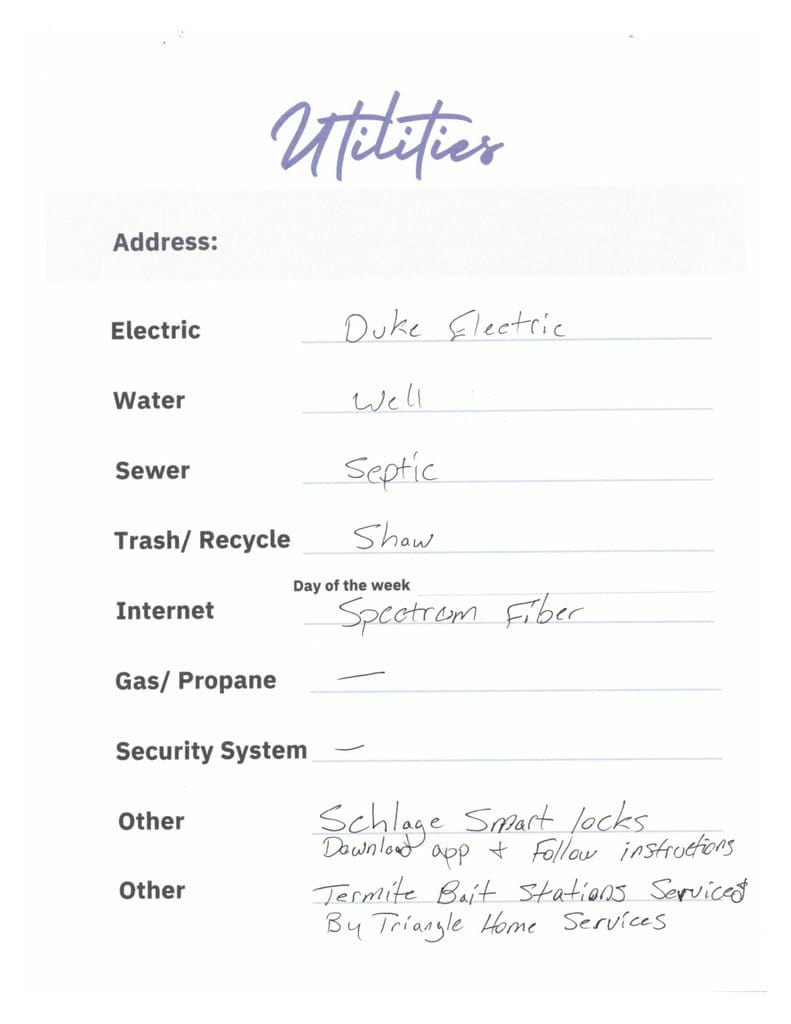 Utilities
Address:
Electric Duke Electric
Water Well
Sewer Septic
Trash/ Recycle Shaw
Day of the week
Internet Spectrum Fiber
Gas/ Propane —
Security System —
Other Schlage Smart locks
Download app + Follow instructions
Other Termite Bait Stations Serviced
By Triangle Home Services